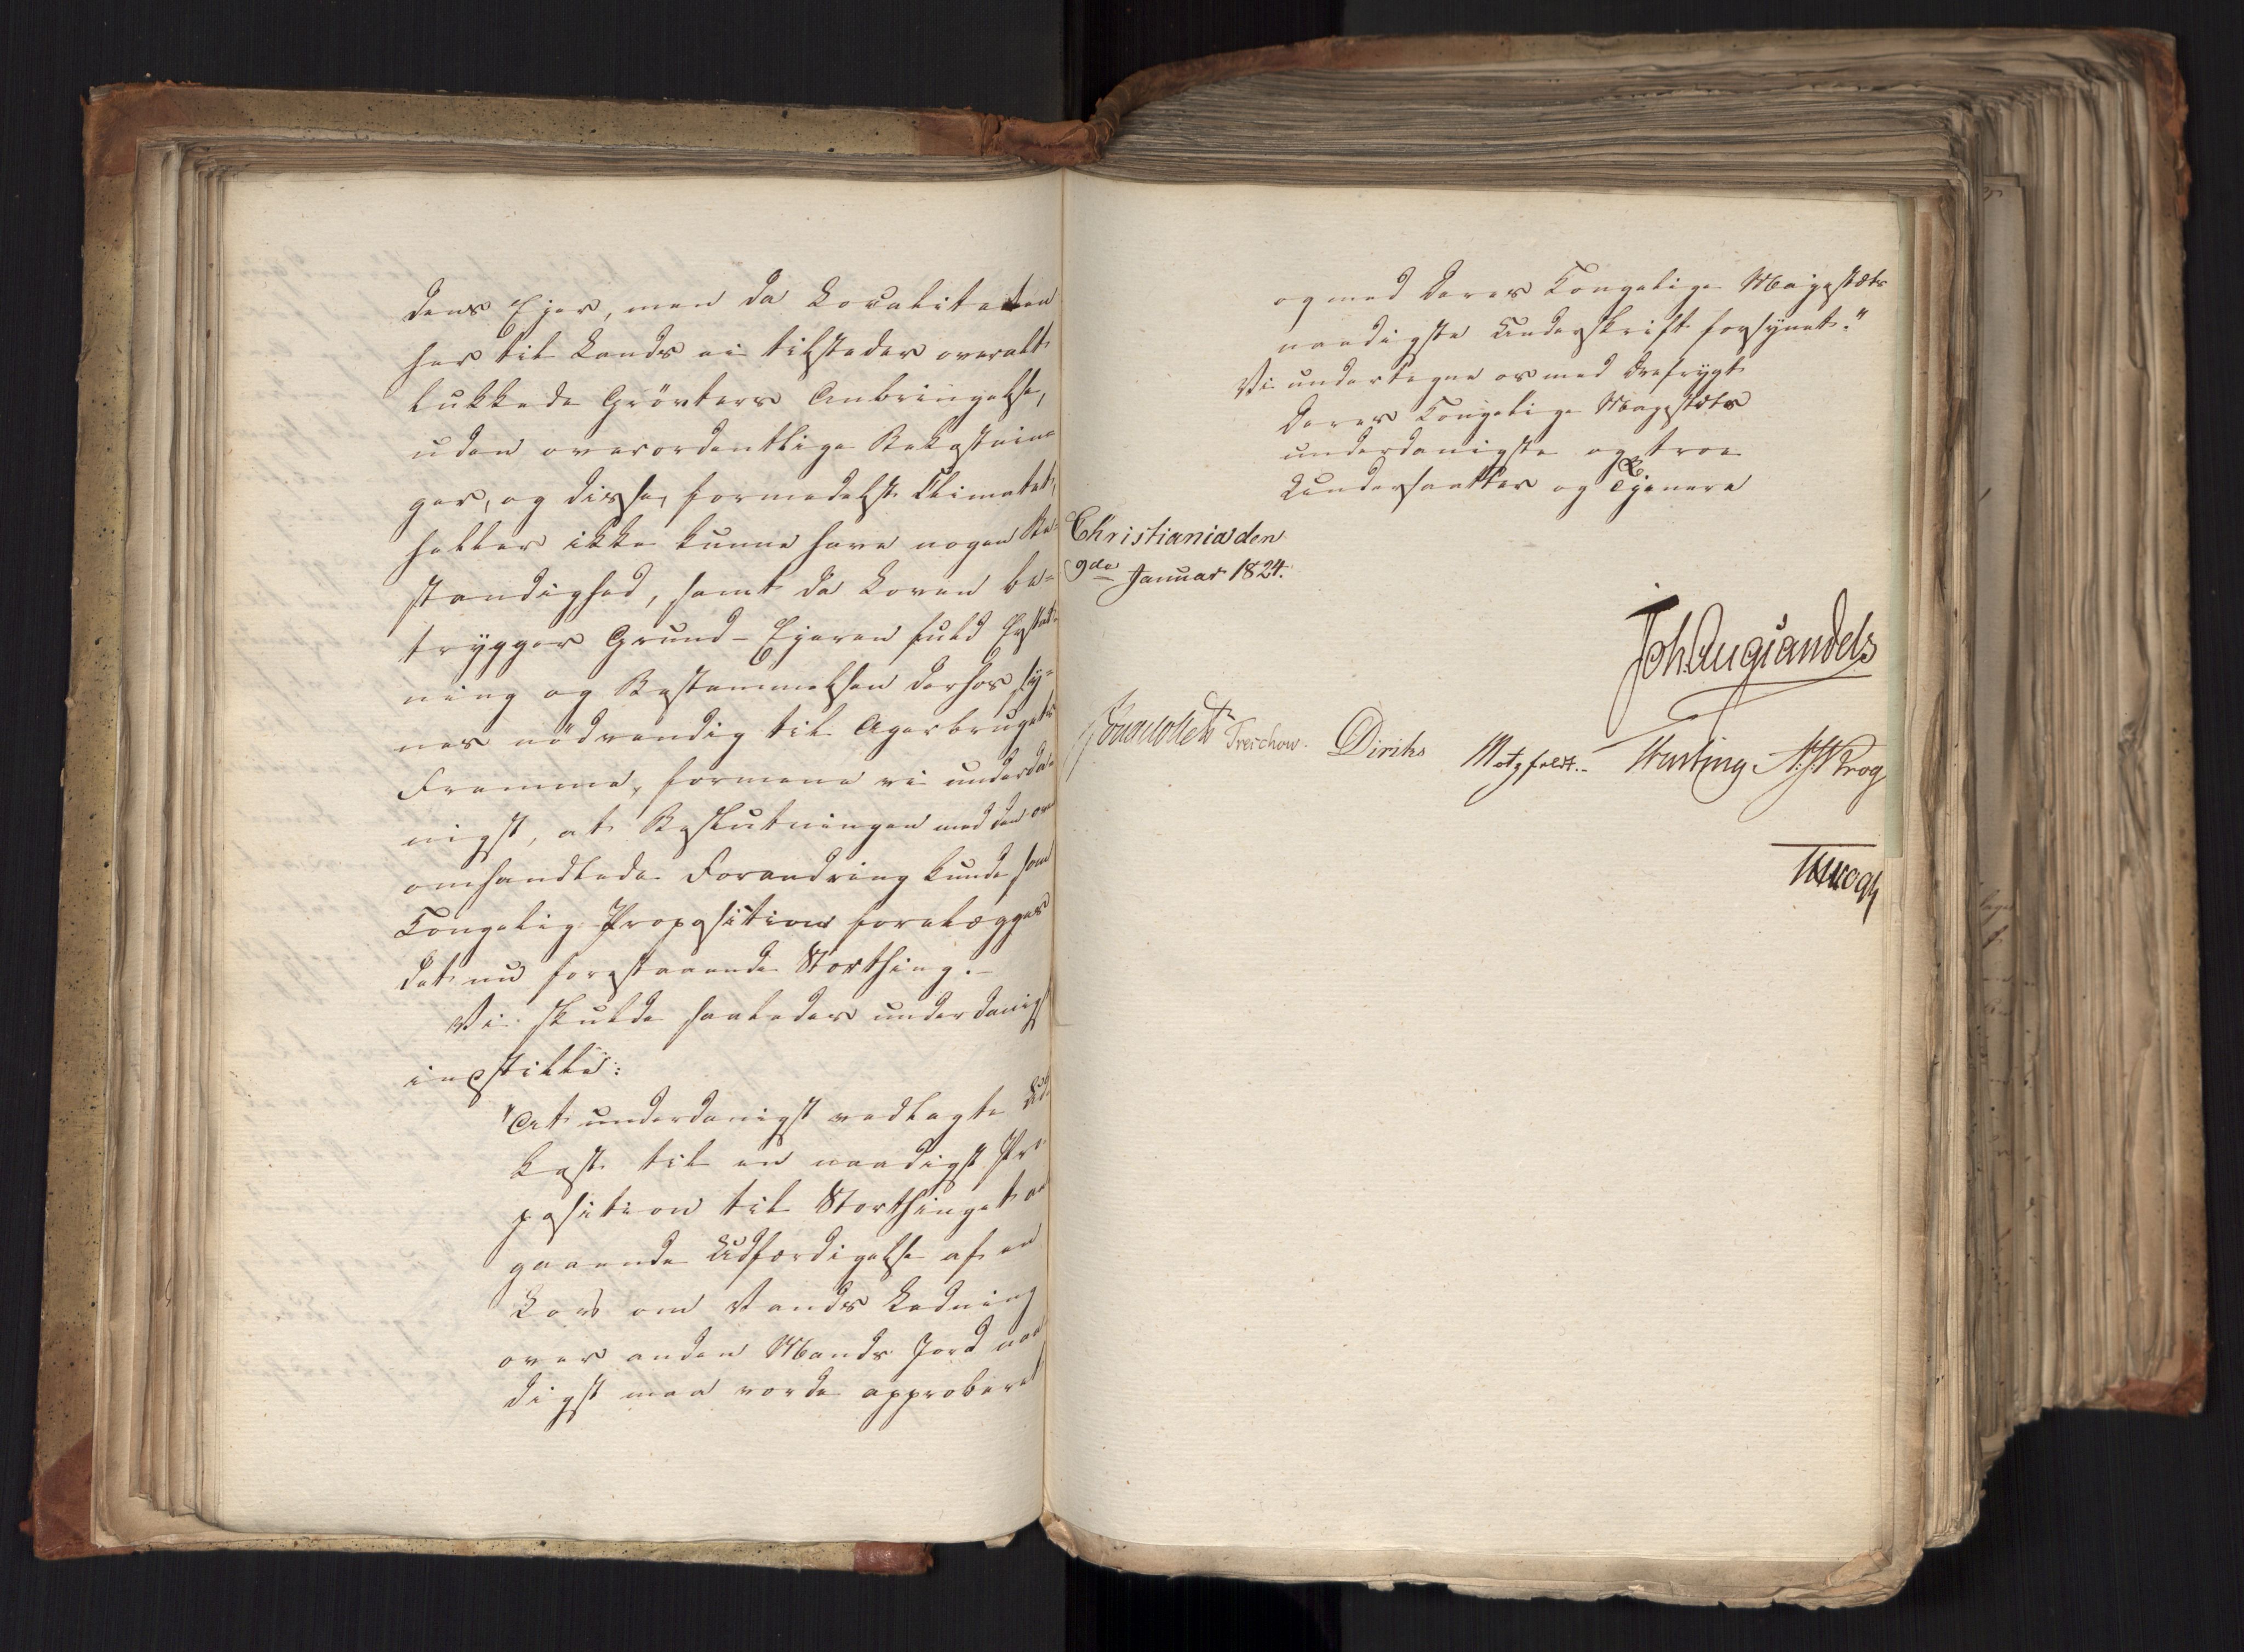 dens Ejer, men da Localiteten
her til Lands ei tilsteder overalt
lukkede Grövters Anbringelse,
uden overordentlige Bekostnin-
ger, og disse, formedelst Climatet,
heller ikke kunne have nogen Be-
standighed, samt da Loven be-
trygger Grund-Ejeren fuld Erstat-
ning og Bestemmelsen derhos sy-
nes nödvendig til Agerbrugets
Fremme, formene vi underda-
nigst, at Beslutningen med den
omhandlede Forandring kunde som
Kongelig Proposition forelægges
det nu forestaaende Storthing.-
Vi skulde saaledes underdanigst
indstille:
"At underdanigst vedlagte Ud-
kast til en naadigst Pro-
position til Storthinget an
gaaende Udfærdigelse af en
Lov om Vands Ledning
over anden Mands Jord naa
digst maa vorde approberet
og med Deres Kongelige Majestæts
naadigste Underskrift forsynet."
Vi undertegne os med Ærefrygt
Deres Kongelige Majestæts
underdanigste og troe
Undersaatter og Tjenere
Christiania den
9de Januar 1824.
Joh Aug Sandels
JCollett Treschow. Diriks Motzfeldt.- N.J. Krog